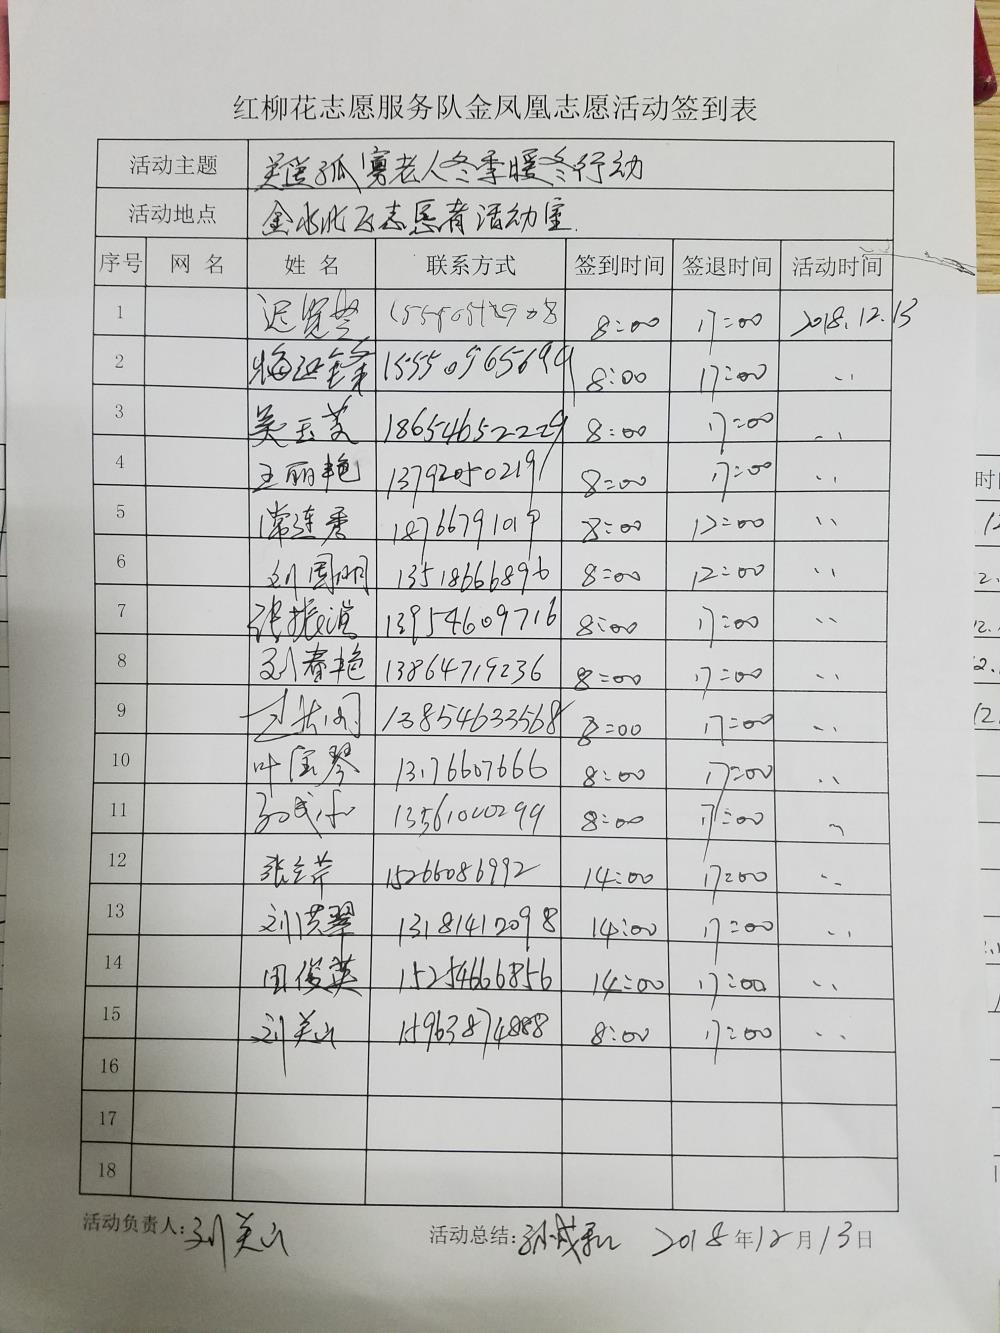 红柳花志愿服务队金凤凰志愿活动签到表
活动主题 关爱孤寡老人冬季暖冬行动
活动地点 金水北区志愿者活动室
序号 网名 姓名 联系方式 签到时间 签退时间 活动时间
1 8:00 17:00 2018.12.13
2 15550965694 8:00 17:00 〃
3 吴玉美 18654652229 8:00 17:00 〃
4 王丽艳 13792050219 8:00 17:00 〃
5 常连秀 18766791019 8:00 12:00 〃
6 刘周明 13518666896 8:00 12:00 〃
7 张振滨 13954609716 8:00 17:00 〃
8 刘春艳 13864719236 8:00 17:00 〃
9 13854633568 8:00 17:00 〃
10 叶宝琴 13176607666 8:00 17:00 〃
11 孙成和 13561000299 8:00 17:00 〃
12 张立芹 15266086992 14:00 17:00 〃
13 刘洪翠 13181412098 14:00 17:00 〃
14 田俊英 15254666856 14:00 17:00 〃
15 刘美山 15963874888 8:00 17:00 〃
16
17
18
活动负责人:刘美山 活动总结:孙成和 2018年12月13日